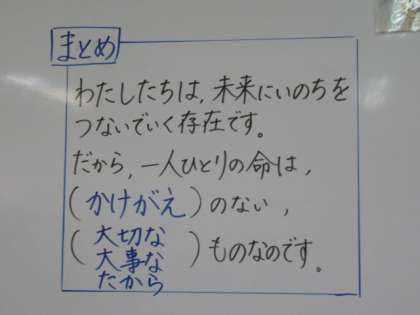 まとめ
わたしたちは,未来にいのちを
つないでいく存在です。
だから,一人ひとりの命は,
(かけがえ)のない,
(大切な
大事な
たから)ものなのです。